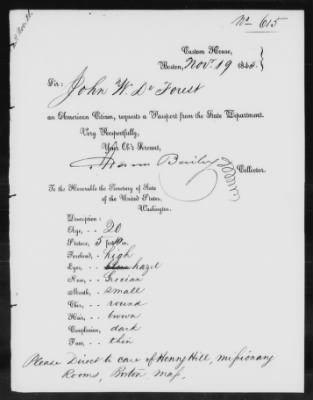 No 615
Custom House,
Boston, Nov. 19 184
Sir:
John W. De Forest
an American Citizen, requests a Passport from the State Department.
Very Respectfully,
Your Ob't Servant,
Collector.
To the Honorable the Secretary of State
of the United States,
Washington.
Description:
Age, - - 20
Stature, 5 feet in.
Forehead, - high
Eyes, - - hazel
Nose, - - Grecian
Mouth, - small
Chin, - - round
Hair, - - brown
Complexion, dark
Face, - - thin
Please Direct to care of Henry Hill, missionary
Rooms, Boston Mass.